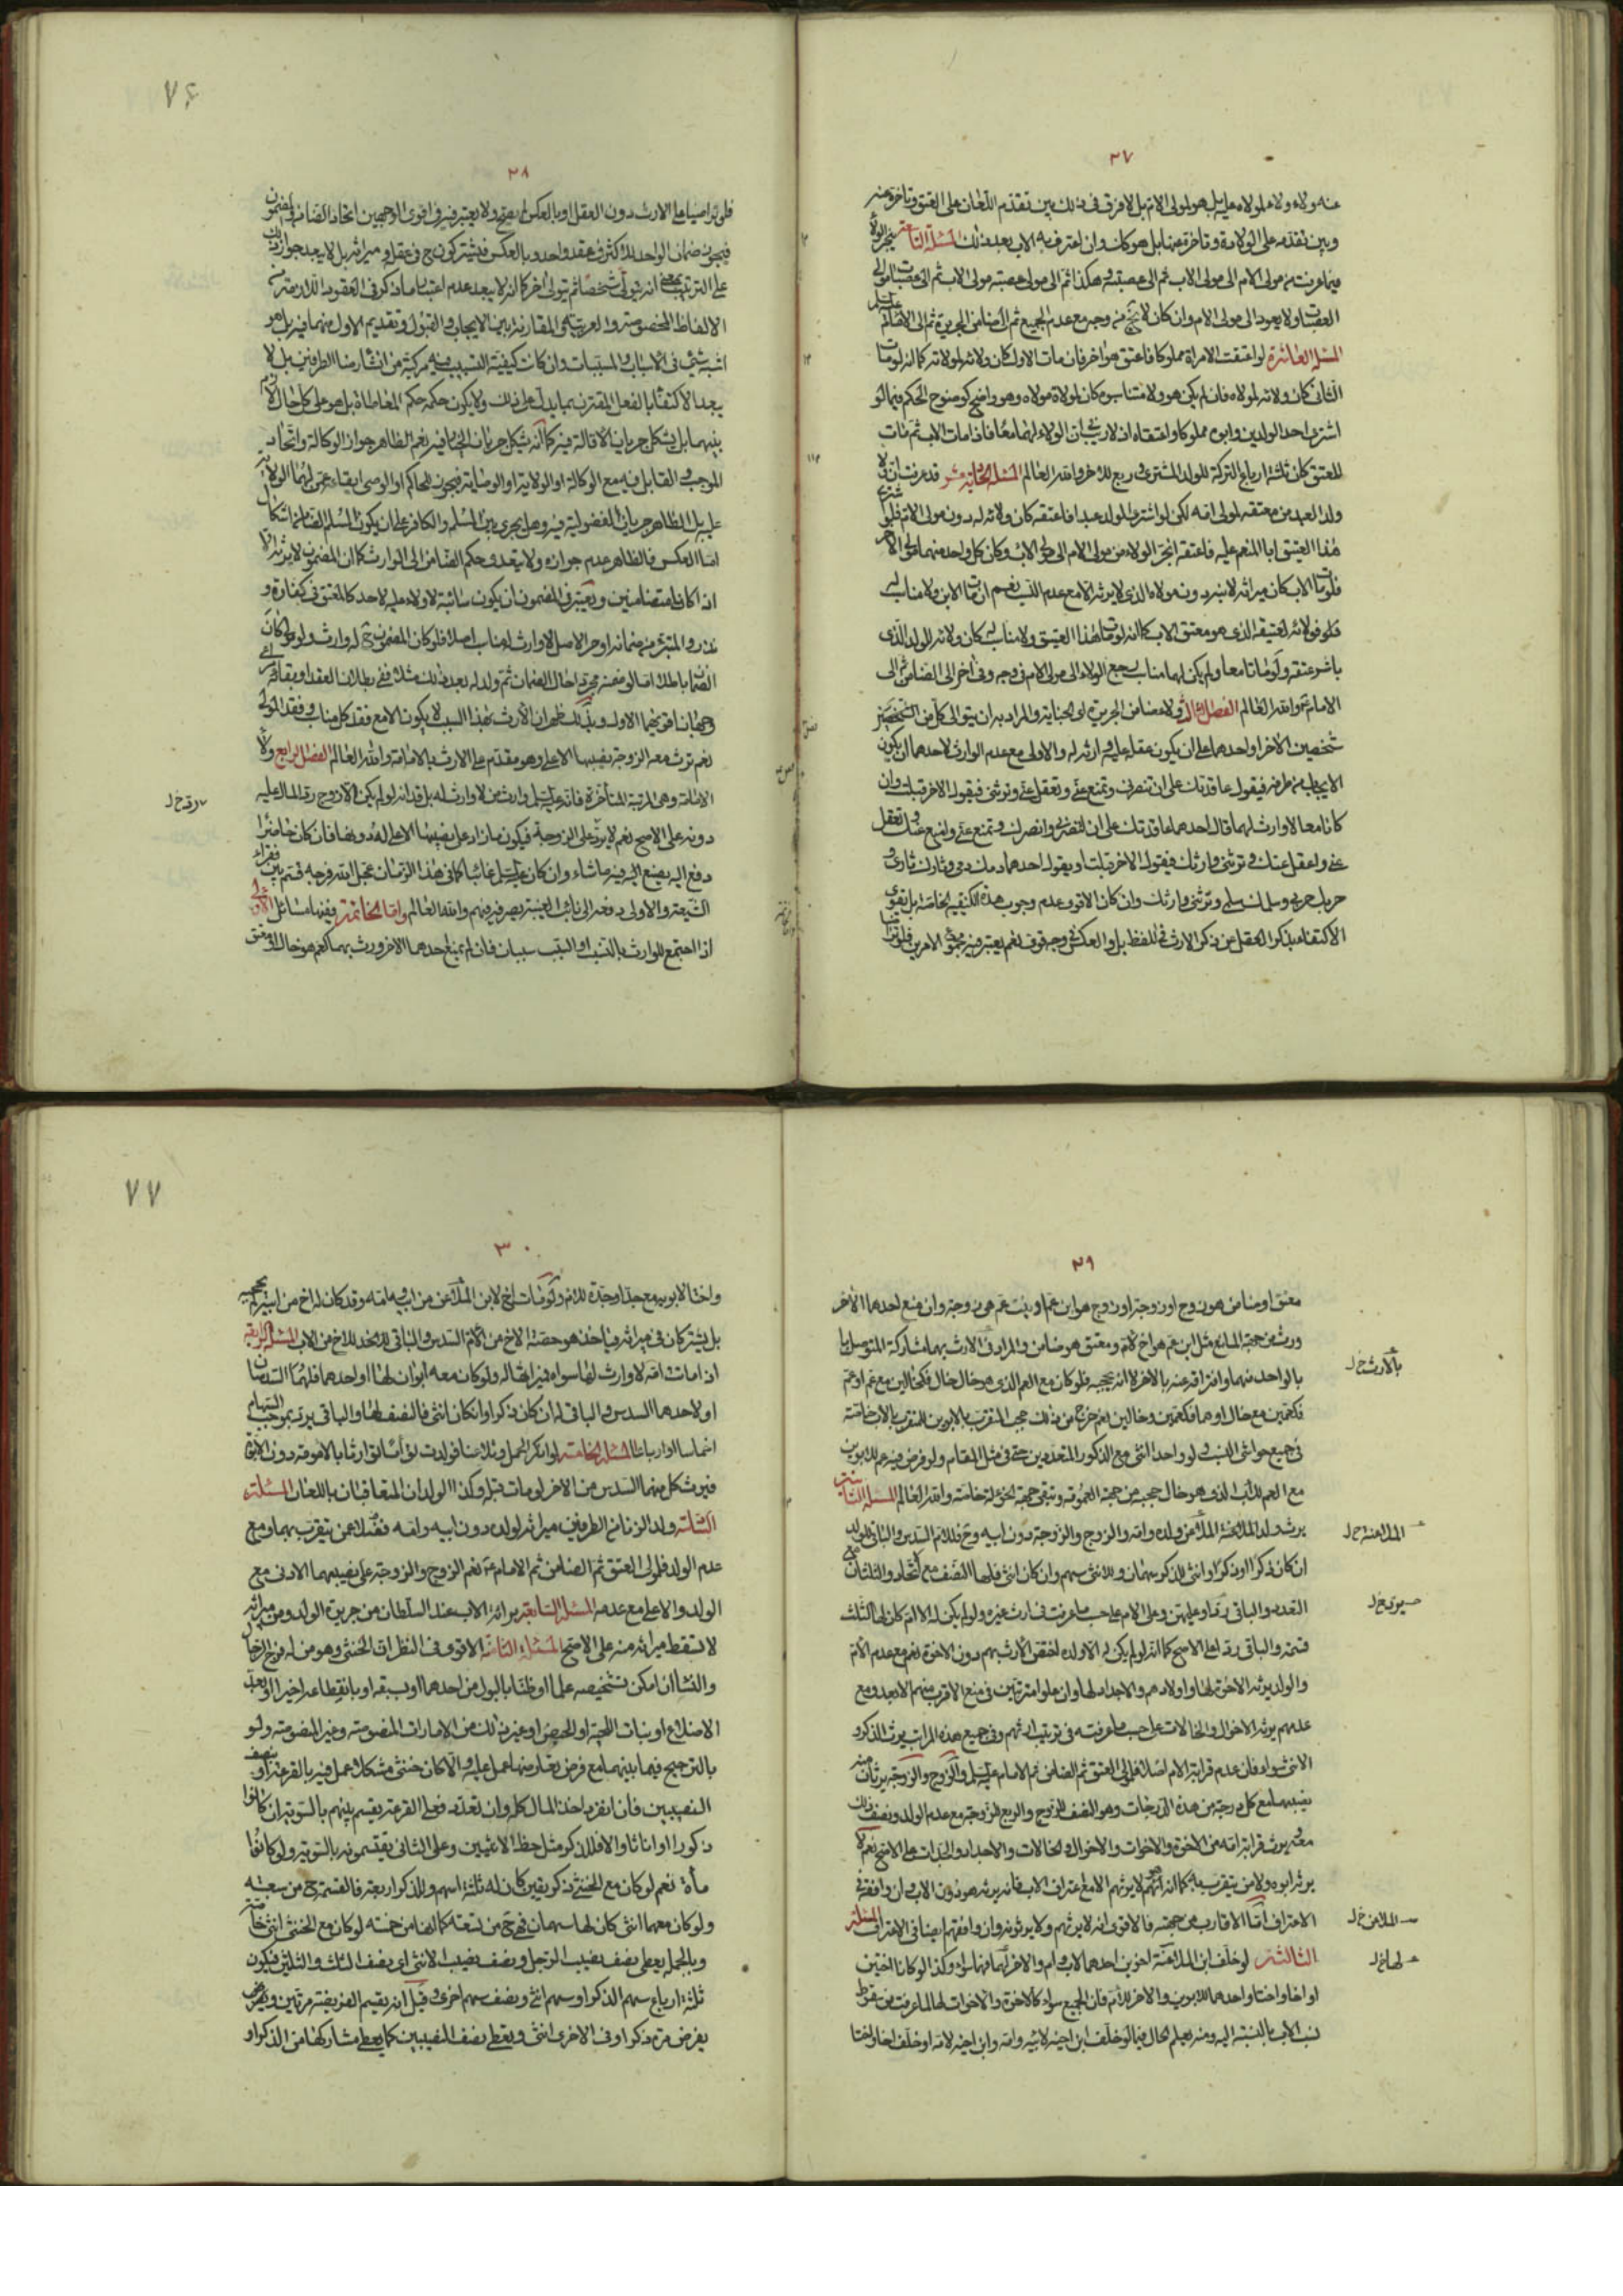 ٢٧
عنه ولاء ولاء لمولاه عليه بل هو لمولى الام بل لا فرق فى ذلك بين تقدم اللعان على العتق وتاخره عنه
وبين تقدمه على الولادة وتاخره عنها بل هو كان وان اعترف به الاب بعد ذلك المسئلة التاسعة ينجر الولاء
فيما عرفت من مولى الام الى مولى الاب ثم الى عصبته وهكذا ثم الى مولى عصبة مولى الاب ثم الى عصبات موالى
العصبات ولا يعود الى مولى الام وان كان لا يخ من وجه مع عدم الجميع ثم الى ضامن الجريرة ثم الى الامام عليه السلم
المسئلة العاشرة لو اعتقت الامراة مملوكا فاعتق هو اخر فان مات الاول كان ولائه لمولاته كما انه لو مات
الثانى كان ولائه لمولاه فان لم يكن هو ولا مناسبوه كان لمولاة مولاه وهو واضح كوضوح الحكم فيما لو
اشترى احد الولدين وابوه مملوكا واعتقاه اذ لا ريب فى ان الولاء لهما معا فاذا مات الاب ثم مات
المعتق كان ثلثة ارباع التركة للولد المشترى وربع للاخر والله العالم المسئلة الحادية عشر قد عرفت ان ولاء
ولد العبد من معتقه لمولى امه لكن لو اشترى الولد عبدا فاعتقه كان ولائه له دون مولى الام فلو اشترى
هذا العتيق ابا المنعم عليه فاعتقه انجر الولاء من مولى الام الى مولى الاب وكان كل واحد منهما مولى الاخر
فلو مات الاب كان ميراثه لابنه دون مولاه الذى لا يرثه الا مع عدم النسب نعم ان مات الابن ولا مناسب له
فلو فولائه لعتيقه الذى هو معتق الاب كما انه لو مات هذا العتيق ولا مناسب له كان ولائه للولد الذى
باشر عتقه ولو ماتا معا ولم يكن لهما مناسب رجع الولاء الى مولى الام فى وجه وفى اخر الى الضامن ثم الى
الامام عم والله العالم الفصل الثالث ولاء ضامن الجريرة اى الجناية والمراد به ان يتوالى كل من الشخصين
شخصين الاخر او احدهما على ان يكون عقله عليه وارثه له والاولى مع عدم الوارث لاحدهما ان يكون
الايجاب من طرفه فيقول عاقدتك على ان تنصرنى وتمنع عنى وتعقل عنى وترثنى فيقول الاخر قبلت وان
كانا معا لا وارث لهما قال احدهما عاقدتك على ان تنصرنى وانصرك وتمنع عنى وامنع عنك وتعقل
عنى واعقل عنك وترثنى وارثك فيقول الاخر قبلت او يقول احدهما دمك دمى وثارك ثارى و
حربك حربى وسلمك سلمى وترثنى وارثك وان كان الاقوى عدم وجوب هذه الكيفية الخاصة بل يقوى
الاكتفاء بذكر العقل عن ذكر الارث فى اللفظ بل والعكس فى وجه قوى نعم يعتبر فيه مجموع الامرين
٧٦
٢٨
فلو تراضيا على الارث دون العقل او بالعكس لم يصح ولا يعتبر فيه فى اقوى الوجهين اتحاد الضامن والمضمون
فيجوز ضمان الواحد للاكثر فى عقد واحد وبالعكس فيشتركون ح فى عقله وميراثه بل لا يبعد جواز ذلك
على الترتيب بمعنى انه يتولى شخصا ثم يتولى اخر كما انه لا يبعد عدم اعتبار ما ذكر فى العقود اللازمة من
الالفاظ المخصوصة والعربية والمقارنة بين الايجاب والقبول وتقديم الاول منهما فيه بل هو
اشبه شئ فى الاسباب والمسببات وان كانت كيفية التسبيب فيه مركبة من انشاء رضا الطرفين بل لا
يبعد الاكتفاء بالفعل المقترن بما يدل على ذلك ولا يكون حكمه حكم المعاطاة بل هو على كل حال لازم
بينهما بل يشكل جريان الاقالة فيه كما انه يشكل جريان الخيار فيه نعم الظاهر جواز الوكالة واتحاد
الموجب والقابل فيه مع الوكالة او الولاية او الوصاية فيجوز للحاكم او الوصى ايقاعه عمن لهما الولاية
عليه بل الظاهر جريان الفضولية فيه وهل يجرى بين المسلم والكافر على ان يكون المسلم الضامن اشكال
اما العكس فالظاهر عدم جوازه ولا يتعدى حكم الضامن الى الوارث كما ان المضمون لا يرثه الا
اذا كانا متضامنين ويعتبر فى المضمون ان يكون سائبة لا ولاء عليه لاحد كالمعتق فى كفارة و
نذر والمتبرء من ضمانه او حر الاصل لا وارث له مناسب اصلا فلو كان المضمون ح له وارث ولو مولى كان
الضمان باطلا اما لو ضمنه مجردا حال الضمان ثم ولد له بعد ذلك مثلا ففى بطلان العقد او بقائه مراعى
وجهان اقربهما الاول وبذلك ظهر ان الارث بهذا السبب لا يكون الا مع فقد كل مناسب وفقد المولى
نعم ترث معه الزوجة نصيبها الاعلى وهو مقدم على الارث بالامامة والله العالم الفصل الرابع ولاء
الامامة وهى المرتبة المتاخرة فانه عليه السلم وارث من لا وارث له بل قد انه لو لم يكن الا زوج رد المال عليه
دونه على الاصح نعم لا يرد على الزوجة فيكون ما زاد على نصيبها الاعلى له دونها فان كان حاضرا
دفع اليه يصنع اليه فيه ما شاء وان كان عليه السلم غائبا كما فى هذا الزمان عجل الله فرجه قسم بين فقراء
الشيعة والاولى دفعه الى نائب الغيبة يصرفه فيهم والله العالم واما الخاتمة ففيها مسائل الاولى
اذا اجتمع للوارث بالنسب او السبب سببان فان لم يمنع احدهما الاخر ورث بهما كعم هو خال او معتق
رد خ ل
٢٩
معتق او ضامن هو زوج او زوجة او زوج هو ابن عم او بنت عم هى زوجة وان منع احدهما الاخر
ورث من جهة المانع مثل ابن عم هو اخ لام ومعتق هو ضامن والمراد فى الارث بهما مشاركة المتوسل بها
بالواحد منهما وافتراقه عنه بالاخر لا انه يحجبه فلو كان مع العم الذى هو خال خال فكخالين مع عم او عم
فكعمين مع خال او هما فكعمين وخالين نعم خرج من ذلك حجب المتقرب بالابوين للمتقرب بالاب خاصة
فى جميع حواشى النسب ولو واحدا انثى مع الذكور المتعددين حتى فى مثل المقام ولو فرض فيه عم للابوين
مع العم للاب الذى هو خال حجبه من جهة العمومة وتبقى جهة الخؤلة خاصة والله العالم المسئلة الثانية
يرث ولد الملاعنة الملاعن ولده وامه والزوج والزوجة دون ابيه وح فللام السدس والباقى للولد
ان كان ذكرا او ذكورا وانثى للذكر سهمان وللانثى سهم وان كان انثى فلها النصف مع الاتحاد والثلثان مع
التعدد والباقى رد عليها وعليهن وعلى الام على حسب ما عرفت فى ارث غيره ولو لم يكن له الا الام كان لها الثلث
تسمية والباقى رد لها على الاصح كما انه لو لم يكن له الا ولده اختص الارث بهم دون الاخوة نعم مع عدم الام
والولد يرثه الاخوة لها واولادهم والاجداد لها وان علوا مترتبين فى منع الاقرب منهم الابعد ومع
عدمهم يرثه الاخوال والخالات على حسب ما عرفته فى ترتيب ارثهم وفى جميع هذه المراتب يرث الذكر و
الانثى سواء فان عدم قرابة الام اصلا فلمولى العتق ثم الضامن ثم الامام عليه السلم والزوج والزوجة يرثان منه
نصيبهما مع كل درجة من هذه الدرجات وهو النصف للزوج والربع للزوجة مع عدم الولد ونصف ذلك
معه ويرث قرابة امه من الاخوة والاخوات والاخوال والخالات والاجداد والجدات على الاصح نعم لا
يرثه ابوه ولا من يتقرب به كما انه لا يرثهم الا مع اعتراف الاب فانه يرثه هو دون الاب وان وافقه فى
الاعتراف اما الاقارب من جهته فالاقوى انه لا يرثهم ولا يرثونه وان وافقهم ايضا فى الاعتراف المسئلة
الثالثة لو خلف ابن الملاعنة اخوين احدهما لاب وام والاخر لامه فهما سواء وكذا لو كانا اختين
او اخا واختا واحدهما للابوين والاخر للام فان الجميع سواء كالاخوة والاخوات لها لما عرفت من سقوط
نسب الاب بالنسبة اليه ومنه يعلم الحال فيما لو خلف ابن اخيه لابيه وامه وابن اخيه لامه او خلف اخا واختا
بالارث خ ل
الملاعنة خ ل
يرد خ ل
الملاعن خ ل
لها خ ل
٧٧
٣٠
واختا لابويه مع جد او جدة للام ولو مات اخ لابن الملاعن من ابيه وامه وقد كان له اخ من ابيه لم يحجبه
بل يشتركان فى ميراثه فياخذ هو حصة الاخ من الام السدس والباقى للاخ من الاب المسئلة الرابعة
اذا ماتت امه لا وارث لها سواه فميراثها له ولو كان معه ابوان لها او احدهما فلهما السدسان
او لاحدهما السدس والباقى له ان كان ذكرا وان كان انثى فالنصف لها والباقى يرد بموجب السهام
اخماسا او ارباعا المسئلة الخامسة لو انكر الحمل وتلاعنا فولدت توامان توارثا بالامومة دون الابوة
فيرث كل منهما السدس من الاخر لو مات قبله وكذا الولدان المتعاقبان باللعان المسئلة
السادسة ولد الزنا من الطرفين ميراثه لولده دون ابيه وامه فضلا عن من يتقرب بهما ومع
عدم الولد فلمولى العتق ثم الضامن ثم الامام عم نعم الزوج والزوجة على نصيبهما الادنى مع
الولد والاعلى مع عدمه المسئلة السابعة براءة الاب عند السلطان من جريرة الولد ومن ميراثه
لا تسقط ميراثه منه على الاصح المسئلة الثامنة الاقوى فى النظر ان الخنثى وهو من له فرج الرجال
والنساء ان امكن تشخيصه علما او ظنا بالبول من احدهما او بسبقه او بانقطاعه اخيرا او بعد
الاضلاع او نبات اللحية او الحيض او غير ذلك من الامارات المنصوصة وغير المنصوصة ولو
بالترجيح فيما بينهما مع فرض تعارضها عمل عليه والا كان خنثى مشكلا عمل فيه بالقرعة او بنصف
النصيبين فان انفرد اخذ المال كله وان تعدد فعلى القرعة يقسم بينهم بالسوية ان كانوا
ذكورا او اناثا والا فللذكر مثل حظ الانثيين وعلى الثانى يقتسمونه بالسوية ولو كانوا
مأة نعم لو كان مع الخنثى ذكر بيقين كان له ثلثة اسهم وللذكر اربعة فالقسمة ح من سبعة
ولو كان معهما انثى كان لها سهمان فهى ح من تسعة كما انها من خمسة لو كان مع الخنثى انثى خاصة
وبالجملة يعطى نصف نصيب الرجل ونصف نصيب الانثى اى نصف الثلث والثلثين فيكون
ثلثة ارباع سهم الذكر او سهم انثى ونصف سهم اخرى وقيل انه يقسم الفريضة مرتين ويفرض
يفرض مرة ذكرا وفى الاخرى انثى ويعطى نصف النصيبين كما يعطى مشاركها من الذكر او